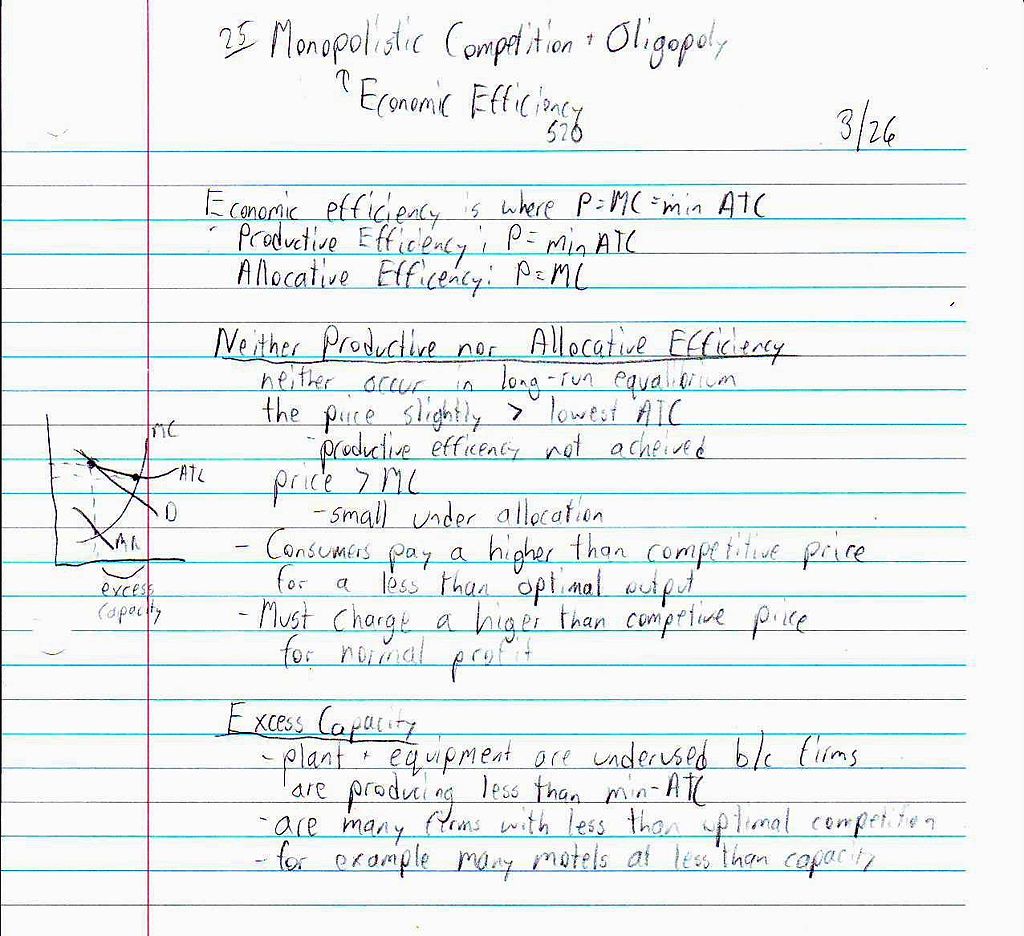 25 Monopolistic Competition + Oligopoly
↑ Economic Efficiency
520
3/26
Economic efficiency is where P=MC=min ATC
Productive Efficiency: P= min ATC
Allocative Efficency: P=MC
Neither Productive nor Allocative Efficiency
neither occur in long-run equalibrium
the price slightly > lowest ATC
-productive efficency not acheived
price > MC
-small under allocation
- Consumers pay a higher than competitive price
for a less than optimal output
- Must charge a higer than competive price
for normal profit
MC
ATC
D
MR
excess
capacity
Excess Capacity
- plant + equipment are underused b/c firms
are producing less than min-ATC
- are many firms with less than optimal competition
- for example many motels at less than capacity